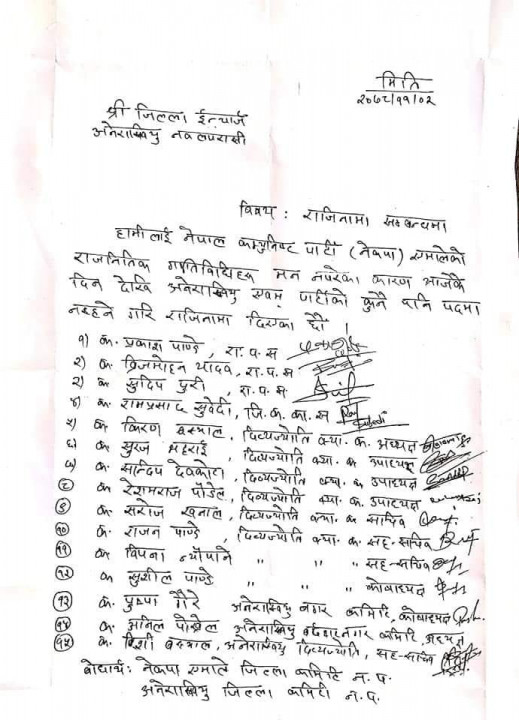 मिति
२०७८/११/०२
श्री जिल्ला ईन्चार्ज
अनेरास्ववियु नवलपरासी
विषय : राजिनामा सम्बन्धमा
हामीलाई नेपाल कम्युनिष्ट पार्टी (नेकपा) एमालेको
राजनितिक गतिविधिहरु मन नपरेका कारण आजैका
दिन देखि अनेरास्ववियु एवम पार्टीको कुनै पनि पदमा
नरहने गरि राजिनामा दिएका छौं ।
१) क. प्रकाश पाण्डे, रा. प. स
२) क. ब्रिजमोहन यादव, रा. प. स
३) क. सुदिप पुरी, रा. प. स
४) क. रामप्रसाद सुवेदी, जि. क. का. स
५) क. किरण बस्याल, दिव्यज्योति क्या. क. अध्यक्ष
६) क. सुरज भट्टराई, दिव्यज्योति क्या. क उपाध्यक्ष
७) क. सन्दिप देवकोटा, दिव्यज्योति क्या. क. उपाध्यक्ष
८) क. रेशमराज पौडेल, दिव्यज्योति क्या. क. उपाध्यक्ष
९) क. सरोज खनाल, दिव्यज्योति क्या. क सचिव
१०) क. राजन पाण्डे, दिव्यज्योति क्या. क. सह-सचिव
११) क. विपना न्यौपाने " " सह-सचिव
१२) क सुशील पाण्डे " " " कोषाध्यक्ष
१३) क. पुष्पा गैरे अनेरास्ववियु नगर कमिटि, कोषाध्यक्ष
१४) क. अनिल पोखरेल अनेरास्ववियु बर्दघाट नगर कमिटि, अध्यक्ष
१५) क. बस्याल, अनेरास्ववियु दिव्यज्योति, सह-सचिव
बोधार्थ: नेकपा एमाले जिल्ला कमिटि न. प.
अनेरास्ववियु जिल्ला कमिटी न. प.